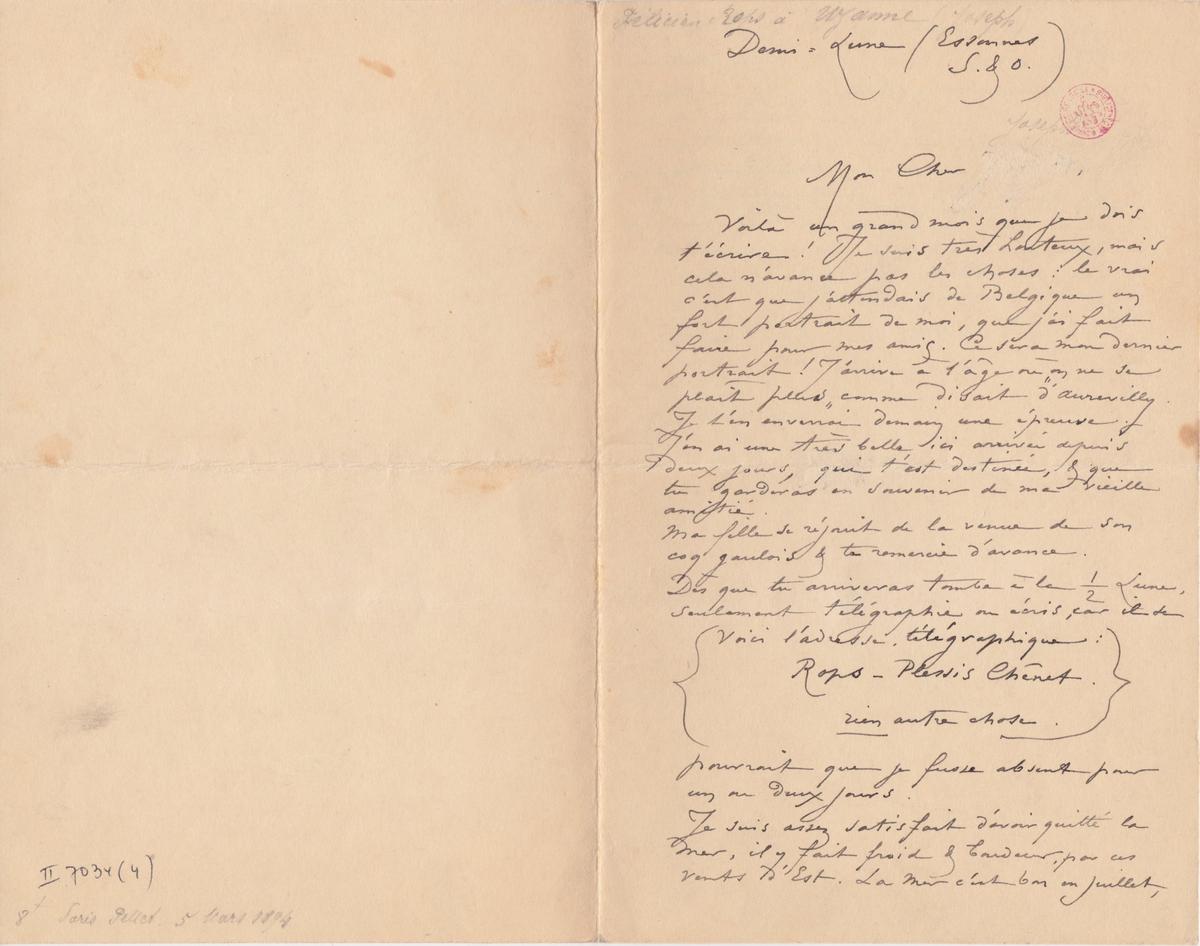 II 7034 (4)
5 Mars 1894
Félicien Rops à Uzanne (Joseph)
Demi-Lune (Essonnes
S. & O.)
Joseph
Mon Cher
Voilà un grand mois que je dois
t'écrire ! Je suis très honteux, mais
cela n'avance pas les choses : le vrai
c'est que j'attendais de Belgique un
fort portrait de moi, que j'ai fait
faire pour mes amis. Ce sera mon dernier
portrait ! J'arrive à l'âge où „on ne se
plait plus„ comme disait d'Aurevilly.
Je t'en enverrai demain une épreuve.
J'en ai une très belle ici arrivée depuis
deux jours, qui t'est destinée, & que
tu garderas en souvenir de ma vieille
amitié.
Ma fille se réjouit de la venue de son
coq gaulois & te remercie d'avance.
Dès que tu arriveras tombe à la 1/2 Lune,
seulement télégraphie ou écris, car il se
Voici l'adresse télégraphique :
Rops – Plessis Chênet.
rien autre chose.
pourrait que je fusse absent pour
un ou deux jours.
Je suis assez satisfait d'avoir quitté la
mer, il y fait froid & par ces
vents d'Est. La Mer c'est bon en juillet,